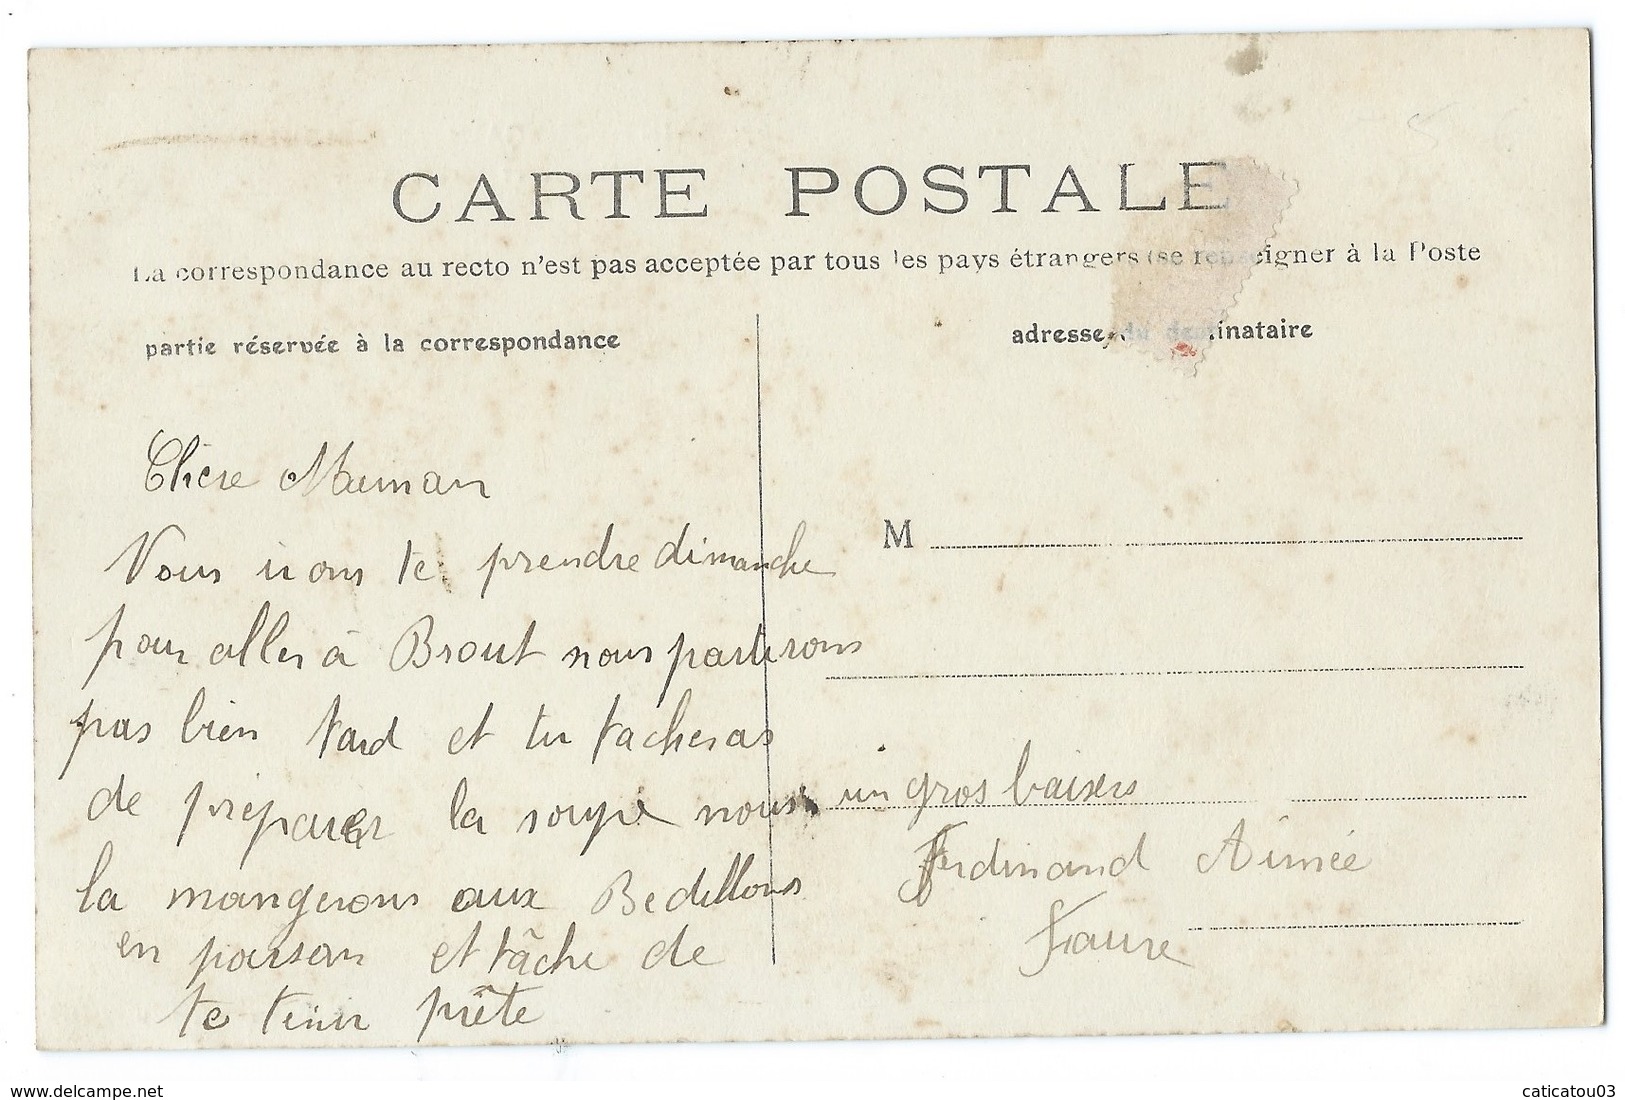 CARTE POSTALE
La correspondance au recto n'est pas acceptée par tous les pays étrangers (se renseigner à la Poste
partie réservée à la correspondance
adresse du destinataire
Chère Maman
Nous irons te prendre dimanche
pour aller à Brout nous partirons
pas bien tard et tu tacheras
de préparer la soupe nous
la mangerons aux Bedillons
en passan et tâche de
te tenir prête
M
un gros baisers
Ferdinand Aimée
Faure
www.delcampe.net
caticatou03